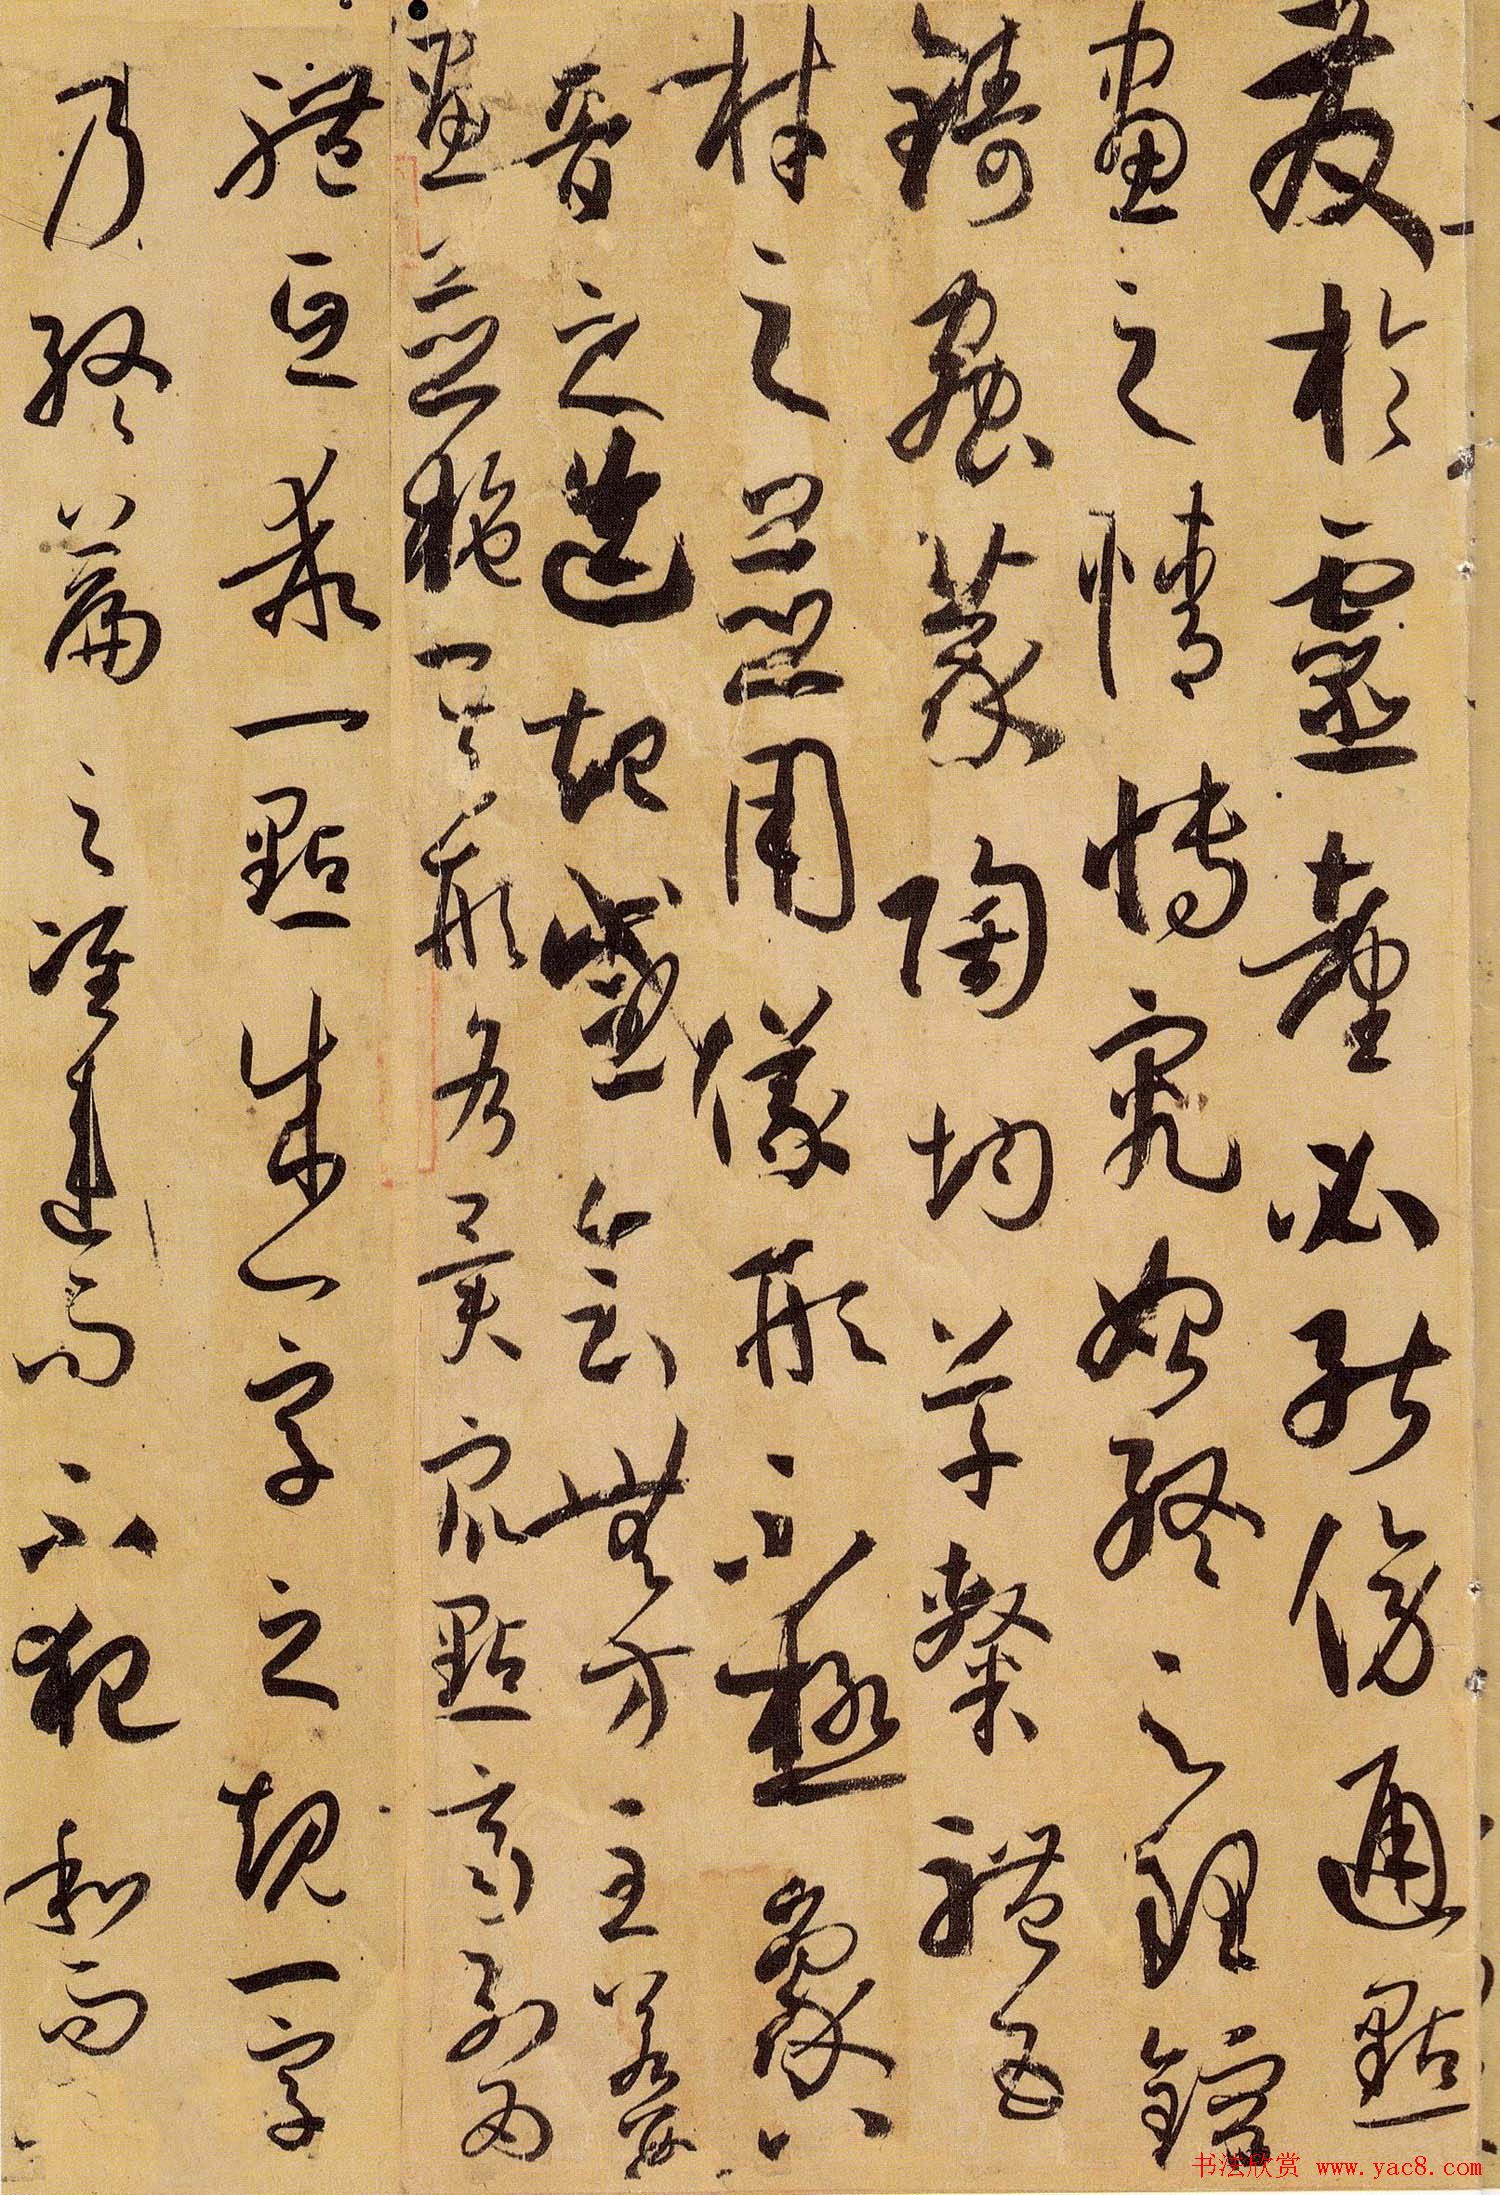 發於靈臺必能傍通點
畫之情博究始終之理鎔
鑄蟲篆陶均草隸體五
材之並用儀形不極象八
音之迭起感會無方至若數
畫並施其形各異眾點齊列為
體互乖一點成一字之規一字
乃終篇之准違而不犯和而
书法欣赏 www.yac8.com